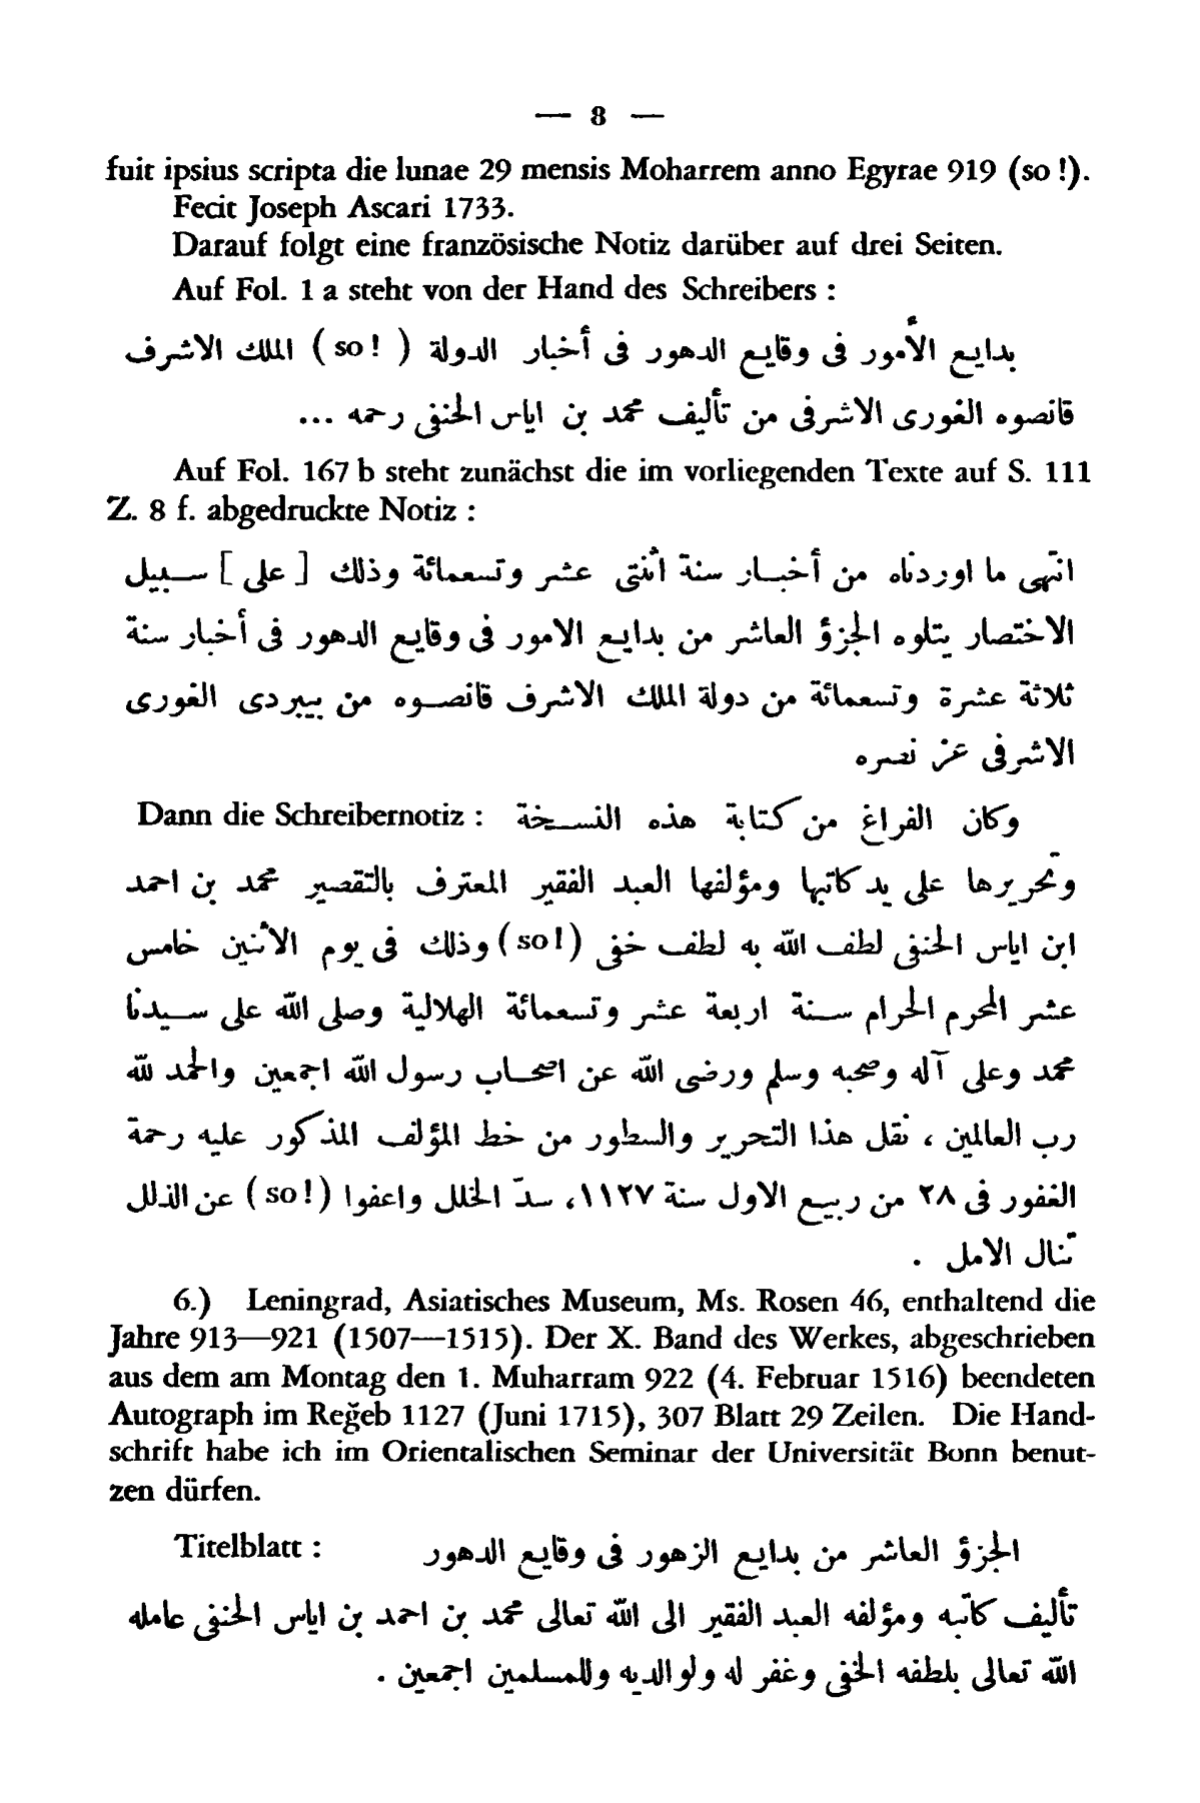 — 8 —
fuit ipsius scripta die lunae 29 mensis Moharrem anno Egyrae 919 (so !).
Fecit Joseph Ascari 1733.
Darauf folgt eine französische Notiz darüber auf drei Seiten.
Auf Fol. 1 a steht von der Hand des Schreibers :
بدايع الأمور فى وقايع الدهور فى أخبار الدولة ( so ! ) الملك الاشرف
قانصوه الغورى الاشرفى من تأليف محمد بن اياس الحنفى رحمه ...
Auf Fol. 167 b steht zunächst die im vorliegenden Texte auf S. 111
Z. 8 f. abgedruckte Notiz :
انتهى ما اوردناه من أخبار سنة اثنتى عشر وتسعمائة وذلك [ على ] سبيل
الاختصار يتلوه الجزؤ العاشر من بدايع الامور فى وقايع الدهور فى أخبار سنة
ثلاثة عشرة وتسعمائة من دولة الملك الاشرف قانصوه من بيبردى الغورى
الاشرفى عز نصره
Dann die Schreibernotiz : وكان الفراغ من كتابة هذه النسخة
وتحريرها على يد كاتبها ومؤلفها العبد الفقير المعترف بالتقصير محمد بن احمد
ابن اياس الحنفى لطف الله به لطف خفى (so !) وذلك فى يوم الاثنين خامس
عشر المحرم الحرام سنة اربعة عشر وتسعمائة الهلالية وصلى الله على سيدنا
محمد وعلى آله وصحبه وسلم ورضى الله عن اصحاب رسول الله اجمعين والحمد لله
رب العالمين ، نقل هذا التحرير والسطور من خط المؤلف المذكور عليه رحمة
الغفور فى ٢٨ من ربيع الاول سنة ١١٢٧، سدّ الخلل واعفوا (so !) عن الذلل
تنال الامل .
6.) Leningrad, Asiatisches Museum, Ms. Rosen 46, enthaltend die
Jahre 913—921 (1507—1515). Der X. Band des Werkes, abgeschrieben
aus dem am Montag den 1. Muharram 922 (4. Februar 1516) beendeten
Autograph im Reğeb 1127 (Juni 1715), 307 Blatt 29 Zeilen. Die Hand-
schrift habe ich im Orientalischen Seminar der Universität Bonn benut-
zen dürfen.
Titelblatt : الجزؤ العاشر من بدايع الزهور فى وقايع الدهور
تأليف كاتبه ومؤلفه العبد الفقير الى الله تعالى محمد بن احمد بن اياس الحنفى عامله
الله تعالى بلطفه الخفى وغفر له ولوالديه وللمسلمين اجمعين .